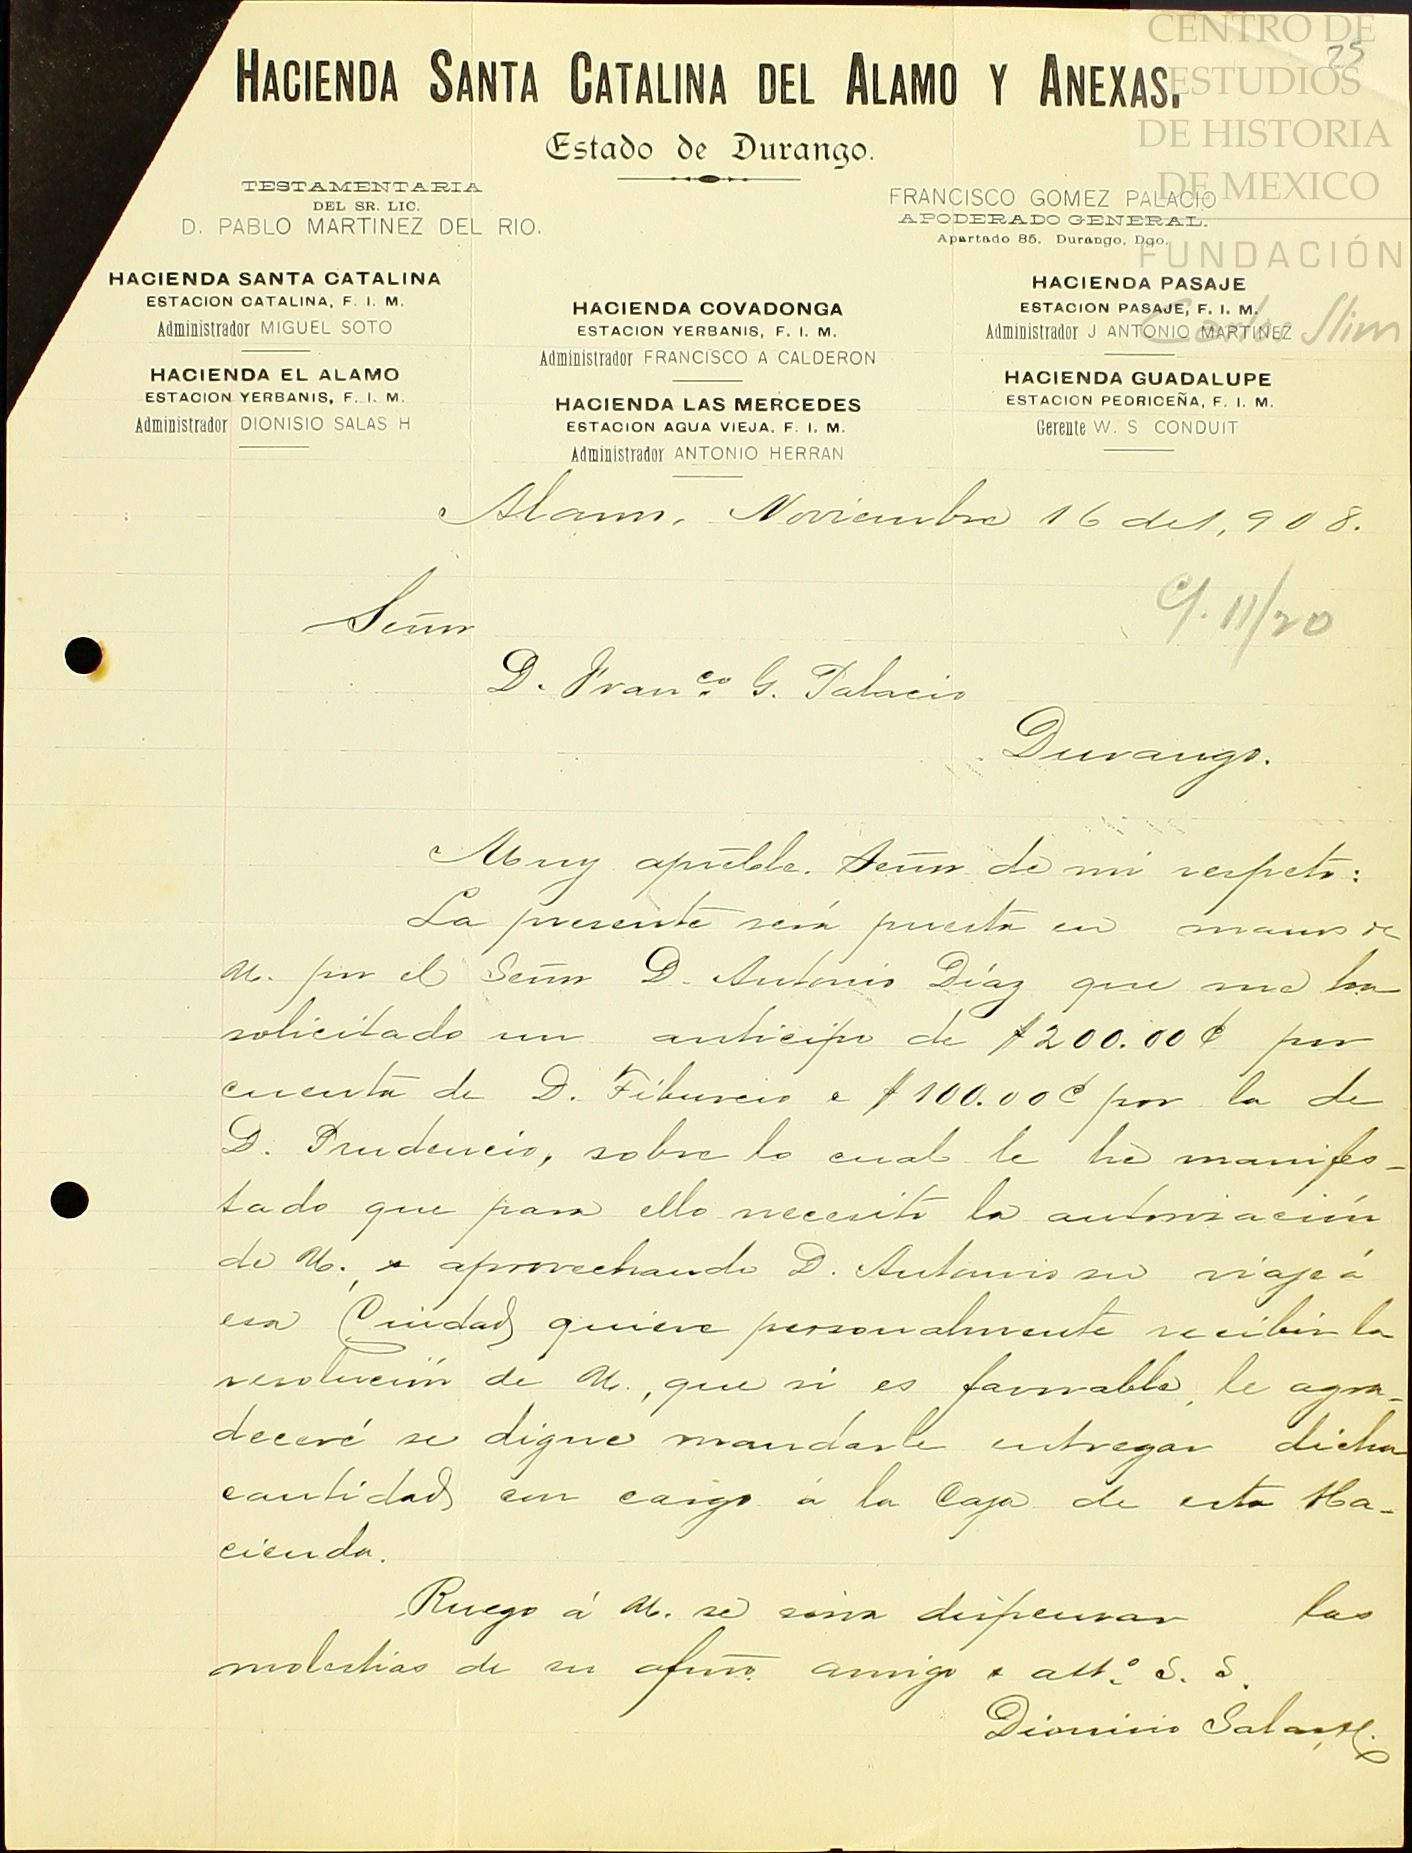 CENTRO DE
ESTUDIOS
DE HISTORIA
DE MEXICO
FUNDACIÓN
Carlos Slim
25
HACIENDA SANTA CATALINA DEL ALAMO Y ANEXAS.
Estado de Durango.
TESTAMENTARIA
DEL SR. LIC.
D. PABLO MARTINEZ DEL RIO.
FRANCISCO GOMEZ PALACIO
APODERADO GENERAL.
Apartado 85. Durango, Dgo.
HACIENDA SANTA CATALINA
ESTACION CATALINA, F. I. M.
Administrador MIGUEL SOTO
HACIENDA EL ALAMO
ESTACION YERBANIS, F. I. M.
Administrador DIONISIO SALAS H
HACIENDA COVADONGA
ESTACION YERBANIS, F. I. M.
Administrador FRANCISCO A CALDERON
HACIENDA LAS MERCEDES
ESTACION AGUA VIEJA. F. I. M.
Administrador ANTONIO HERRAN
HACIENDA PASAJE
ESTACION PASAJE, F. I. M.
Administrador J ANTONIO MARTINEZ
HACIENDA GUADALUPE
ESTACION PEDRICEÑA, F. I. M.
Gerente W. S CONDUIT
Alamo, Noviembre 16 de 1,908.
C/. 11/20
Señor
D. Franco. G. Palacio
Durango.
Muy apreble. Señor de mi respeto:
La presente será puesta en manos de
U. por el Señor D. Antonio Díaz que me ha
solicitado un anticipo de $200.00¢ por
cuenta de D. Tiburcio e $100.00¢ por la de
D. Prudencio, sobre lo cual le he manifes-
tado que para ello necesito la autorización
de U., e aprovechando D. Antonio su viaje á
esa Ciudad, quiere personalmente recibir la
resolución de U., que si es favorable, le agra-
deceré se digne mandarle entregar dicha
cantidad con cargo á la Caja de esta Ha-
cienda.
Ruego á U. se sirva dispensar las
molestias de su afmo. amigo e atto. S. S.
Dionisio Salas H.